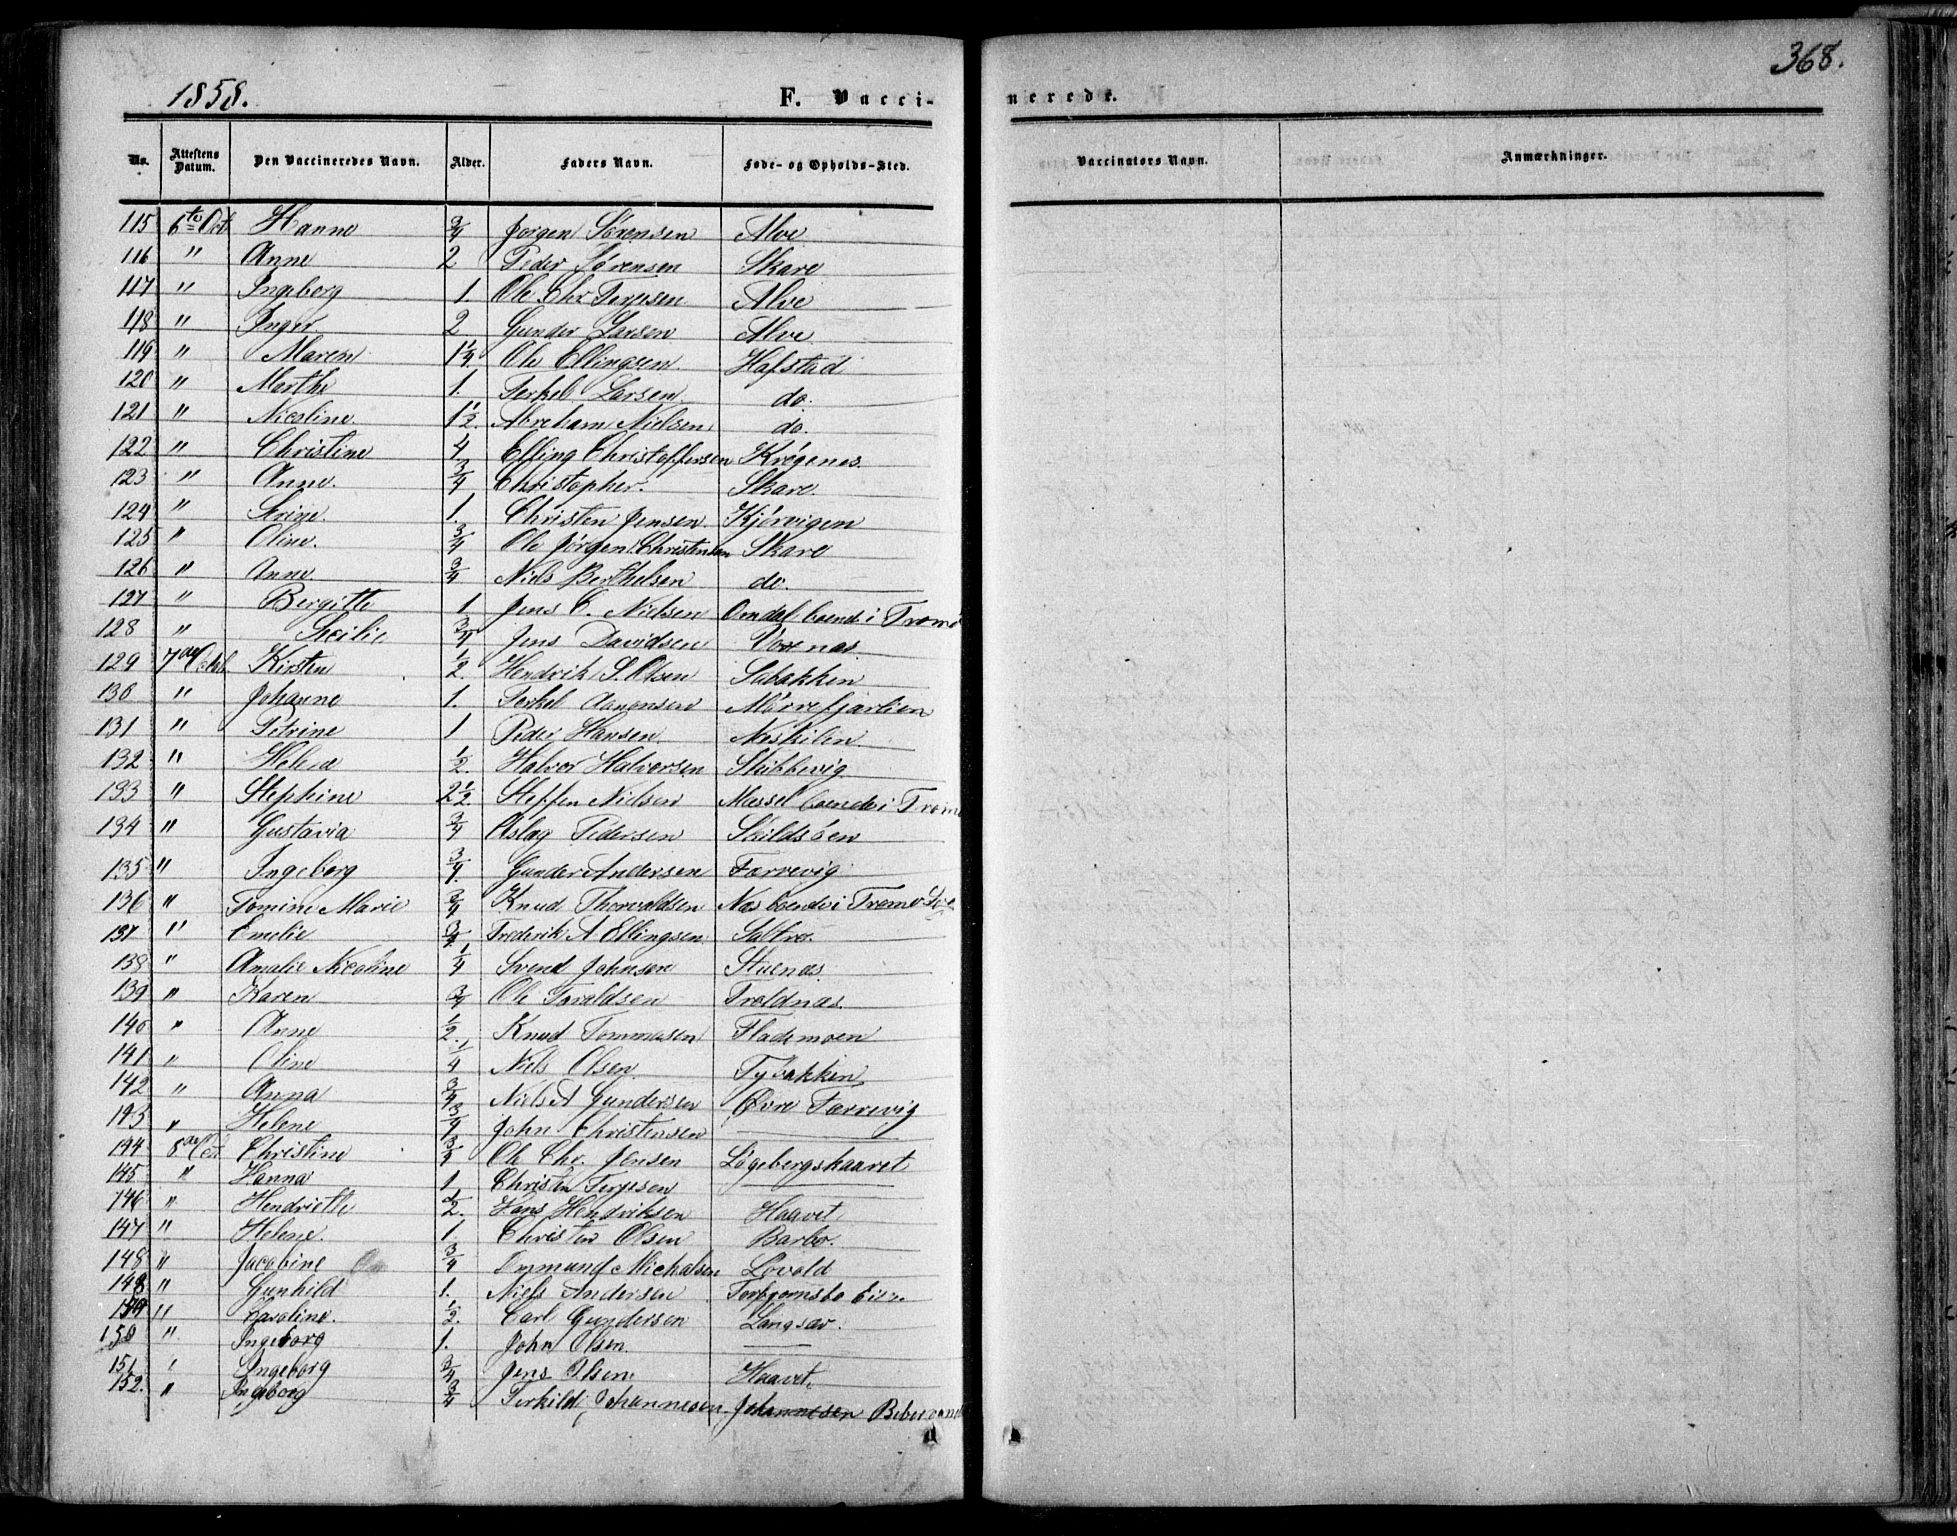 1858. F. Vacci-
nerede. 368.
No. Attestens Datum. Den Vaccineredes Navn. Alder. Faders Navn. Føde- og Opholds-Sted. Vaccinators Navn. Anmærkninger.
115 6te Oct Hanne 3/4 Jørgen Sørensen Alve
116 " Anne 2 Peder Sørensen Skare
117 " Ingeborg 1. Ole Chr Terjesen Alve
118 " Inger 2 Gunder Larsen Alve
119 " Maren 1 1/4. Ole Ellingsen Hafstad
120 " Marthe 1. Terkel Larsen do.
121 " Nicoline. 1 1/2. Abraham Nielsen do.
122 " Christine 4 Elling Christoffersen Krøgenes.
123 " Anne. 3/4 Christopher. Skare.
124 " Trine. 1. Christen Jensen. Kjørvigen
125 " Oline. 3/4 Ole Jørgen Christensen Skare
126 " Anne. 3/4 Niels Berthelsen do.
127 " Bergitte 1. Jens C. Nielsen Omdal boende i Tromø
128 " Secilie 3/4 Jens Davidsen Voxnæs
129 7de Octbr Kirsten 1/2. Hendrik S. Olsen Sabakken
130 " Johanne 1. Terkel Aanonsen Mørrefjærlien
131 " Petrine 1 Peder Hansen Næskilen
132 " Helene 1/2. Halvor Halvorsen Skibbevig
133 " Stephine 2 1/2. Steffen Nielsen Mæssel boende i Tromø
134 " Gustavia 3/4 Aslag Pedersen Skildsøen
135 " Ingeborg 3/4. Gunder Andersen Færvevig
136 " Tomine Marie 3/4 Knud Thorvaldsen Næs boende i Tromø
137 " Emelie 3/4. Frederik A Ellingsen Saltrø.
138 " Amalie Nicoline 1/4 Svend Johnsen Stuenæs
139 " Karen 3/4 Ole Taraldsen Troldnæs.
140 " Anne 1/2. Knud Tommasen Flademoen
141 " Oline 1/4 Niels Olsen Tybakken
142 " Anna 3/4 Niels A Gundersen Øvre Færvevig
143 " Helene 3/4 John Christensen
144 8de Oct. Christine 3/4 Ole Chr. Jensen Løgebergskaaret
145 " Hanna 1. Christen Terjesen
146 " Hendriette 1/2. Hans Hendriksen Haavet
147 " Helene. 1. Christen Olsen Barbo.
148 " Jacobine 3/4 Ommund Michalsen Lovold
148 " Gunhild 1. Niels Andersen
149 " Caroline. 1/2. Carl Gundersen Langsæv.
150 " Ingeborg 1. John Olsen.
151 " Ingeborg 3/4 Jens Olsen Haavet.
152. " Ingeborg 3/4 Terkild Johannesen Johannesen